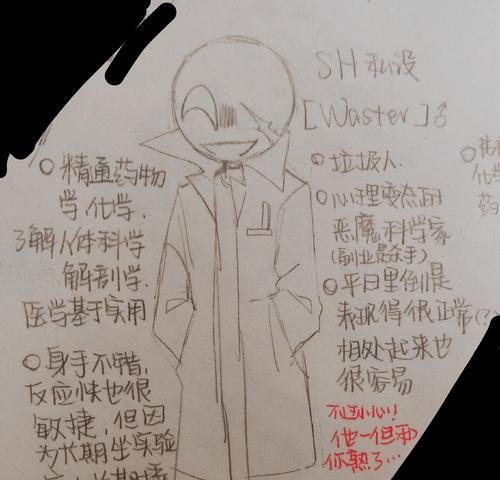 SH 私设
[Waster]♂
○ 精通药物
学,化学,
了解人体科学
解剖学.
医学基于实用
○ 身手不错,
反应快也很
敏捷,但因
为长期坐实验
○ 垃圾人.
○ 心理变态的
恶魔科学家
(副业是杀手)
○ 平日里倒是
表现得很正常(?)
相处起来也
很容易
不过小心!
他一但和
你熟了…
○
化学
药